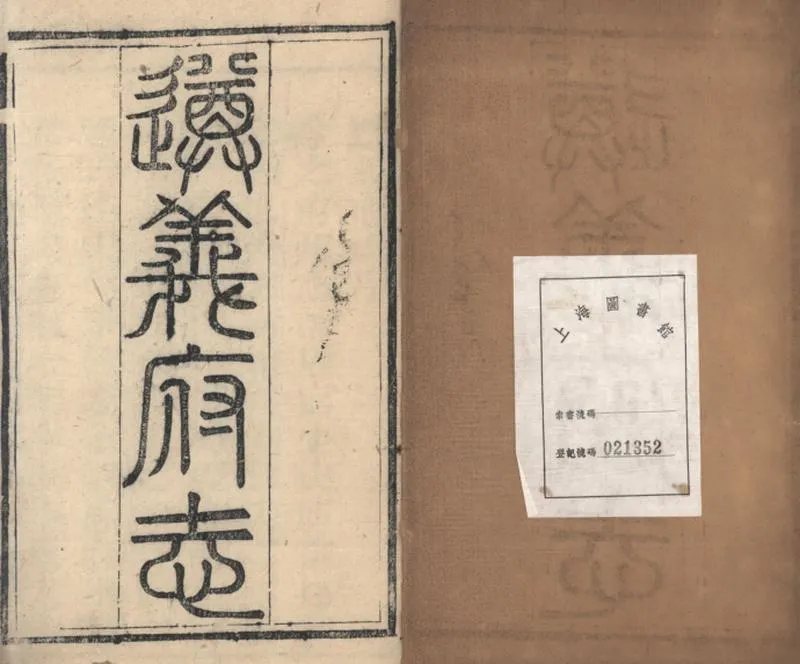 遵義府志
圖書館
索書號碼
登記號碼 021352